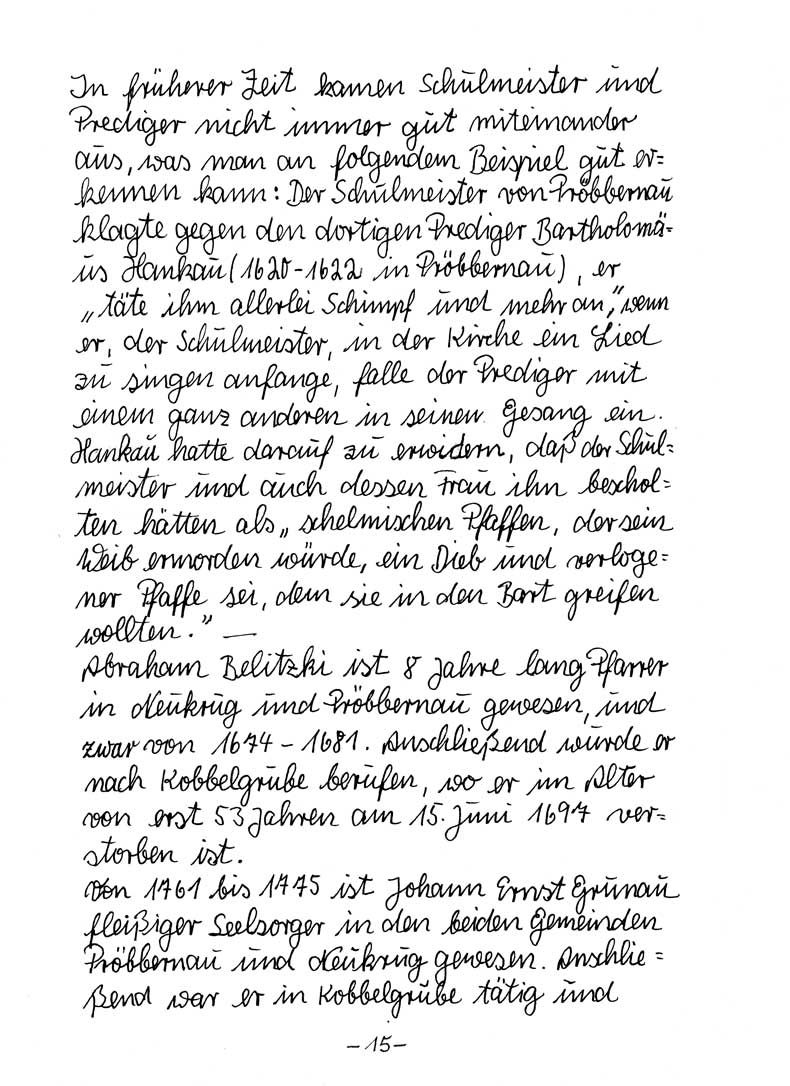 In früherer Zeit kamen Schulmeister und
Prediger nicht immer gut miteinander
aus, was man an folgendem Beispiel gut er=
kennen kann: Der Schulmeister von Pröbbernau
klagte gegen den dortigen Prediger Bartholomä=
us Hankau (1620-1622 in Pröbbernau), er
„täte ihm allerlei Schimpf und mehr an," wenn
er, der Schulmeister, in der Kirche ein Lied
zu singen anfange, falle der Prediger mit
einem ganz anderen in seinen Gesang ein.
Hankau hatte darauf zu erwidern, daß der Schul=
meister und auch dessen Frau ihn beschol=
ten hätten als „schelmischen Pfaffen, der sein
Weib ermorden würde, ein Dieb und verloge=
ner Pfaffe sei, dem sie in den Bart greifen
wollten." —
Abraham Belitzki ist 8 Jahre lang Pfarrer
in Neukrug und Pröbbernau gewesen, und
zwar von 1674 - 1681. Anschließend wurde er
nach Kobbelgrube berufen, wo er im Alter
von erst 53 Jahren am 15. Juni 1697 ver=
storben ist.
Von 1761 bis 1775 ist Johann Ernst Grunau
fleißiger Seelsorger in den beiden Gemeinden
Pröbbernau und Neukrug gewesen. Anschlie=
ßend war er in Kobbelgrube tätig und
-15-